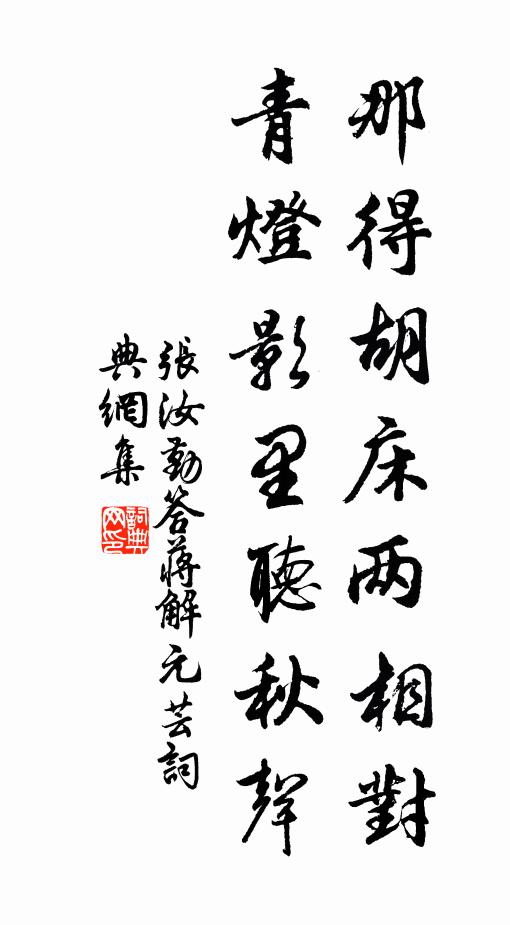 那得胡床两相對
青燈影里聽秋聲
張汝勤答蔣解元芸詞
典網集
詞典网印